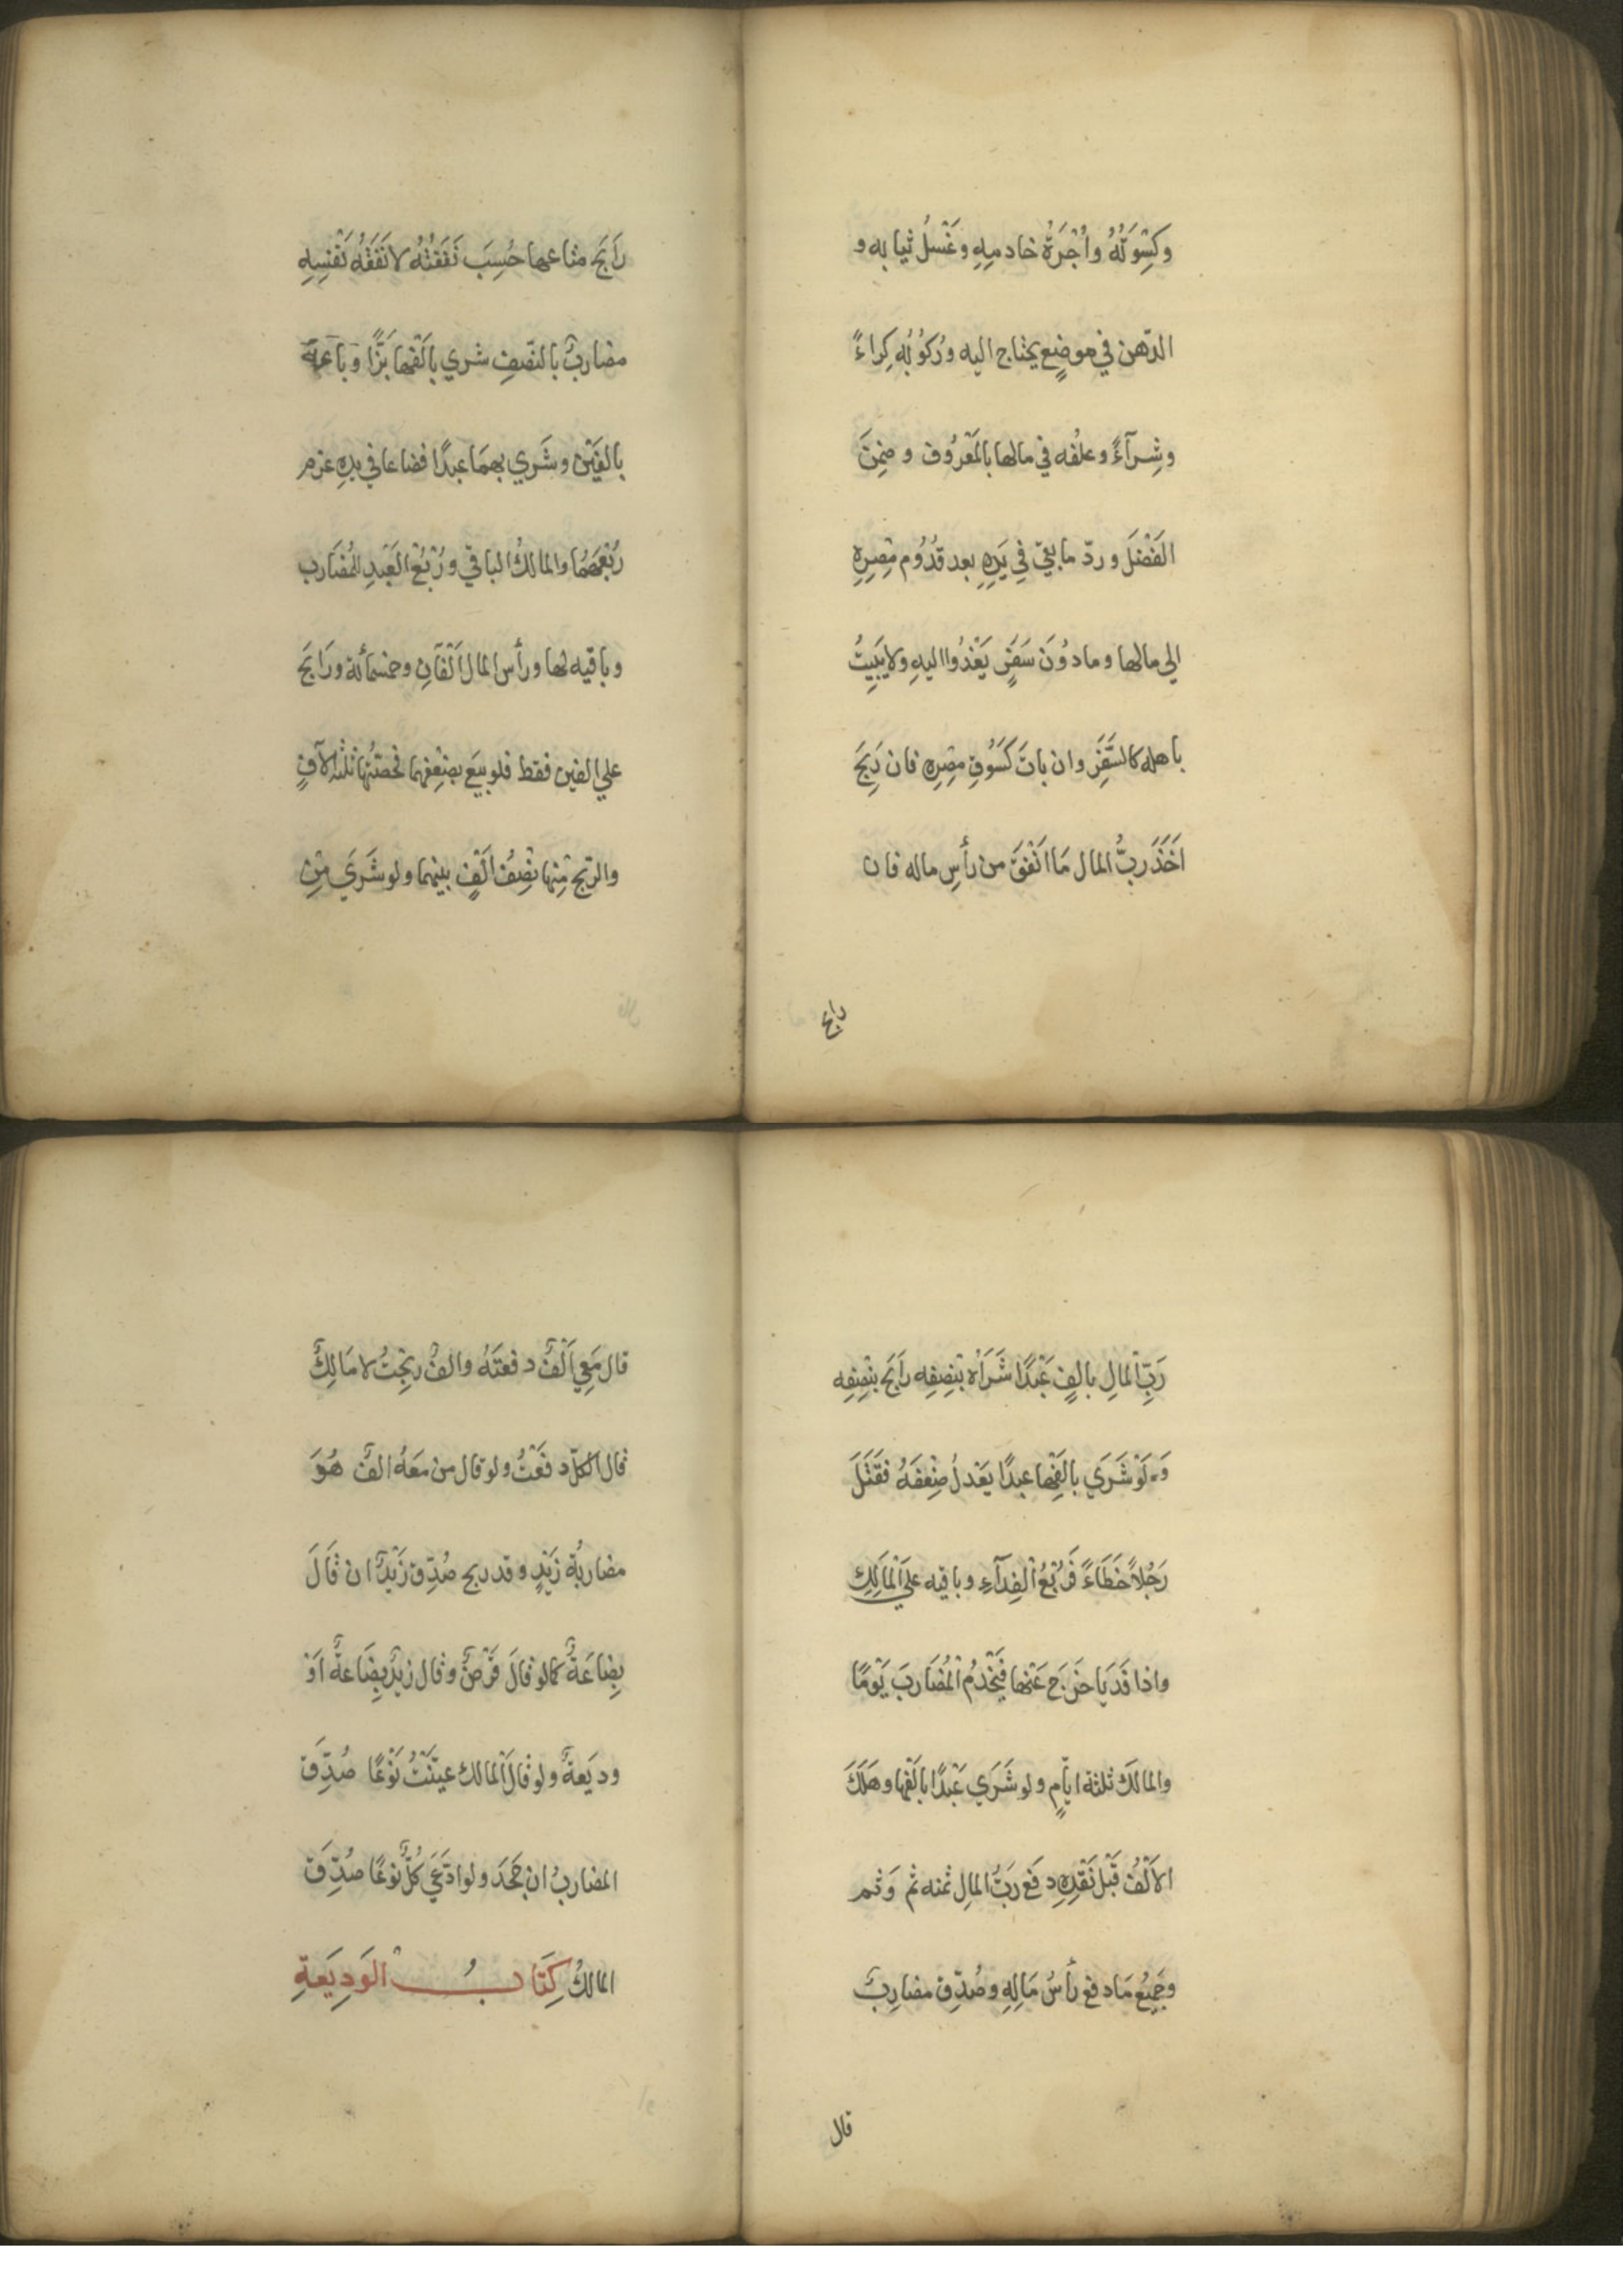 وَكِسْوَتُهُ وأُجْرَةُ خادمِهِ وغَسْلُ ثيابه و
الدّهن في موضِعٍ يحتاج اليه ورُكُوْبُه كِراءً
وشِرآءً وعلفُه في مالها بالمَعْرُوف وضَمِنَ
الفَضْلَ وردّ ما بقي في يَدِهِ بعد قُدُوم مِصْرِهِ
الي مالها وما دُوْنَ سَفَرٍ يَغْدُوا اليهِ ولا يَبِيتُ
باهله كالسَّفَرِ وان باتَ كَسُوْقِ مِصْرِهِ فان رَبِحَ
اَخَذَ ربُّ المال مَا اَنْفَقَ من رأسِ ماله فان
رابح
رَابَحَ متاعها حُسِبَ نَفَقَتُهُ لا نَفَقَةُ نَفْسِهِ
مضاربٌ بالنّصفِ شري بِاَلْفِها بَزًّا وبَاعَهُ
بالفَيْن وشَرَي بهمَا عبدًا فضاعا في يدِهِ غرم
رُبْعَهُمَا والمالكُ الباقي ورُبْعُ العَبْدِ للمُضَارب
وباقيه لها ورأس المال اَلْفَانِ وخمسمائة ورَابَحَ
علي الفين فقط فلو بيعَ بضِعْفِهما فحصّتُها ثلثةُ الآفٍ
والربح مِنْها نِصْفُ اَلْفٍ بينهما ولو شَرَيَ مِنْ
رَبِّ المالِ بالفٍ عَبْدًا شَرَاهُ بنِصْفِهِ رَابَحَ بنِصْفِه
وَلَوْ شَرَي بالفِها عبدًا يَعْدِلُ ضِعْفَهُ فقَتَلَ
رَجُلاً خَطَاءً فَرُبْعُ الفِدآءِ وباقيه عَلَي المَالِكِ
واذا فَدَيَا خَرَجَ عَنْها فَيَخْدُمُ المُضَارِبَ يَوْمًا
والمالكَ ثلثةَ ايّامٍ ولو شَرَي عَبْدًا باَلْفِها وهَلَكَ
الاَلْفُ قَبْلَ نَقْدِهِ دفَعَ رَبُّ المالِ ثمنه ثم وَثم
وجَمِيْعُ مَا دفع رأسُ مَالِهِ وصُدِّق مضارِبٌ
قال
قال مَعِي اَلْفٌ دفعتَهُ والفٌ ربحْتُ لا مَالِكٌ
قال الكلّ دفَعْتُ ولو قال من مَعَهُ الفٌ هُوَ
مضاربَةُ زَيْدٍ وقد ربح صُدِّق زَيْدٌ ان قَالَ
بِضاعَةٌ كما لو قالَ قَرْضٌ وقال زيدٌ بِضَاعةٌ اَوْ
وديَعةٌ ولو قال المالك عيّنْتُ نَوْعًا صُدِّقَ
المضاربُ ان جَحَدَ ولو ادّعَي كُلٌّ نوعًا صُدِّقَ
المالكُ كِتَابُ الوَدِيَعةِ